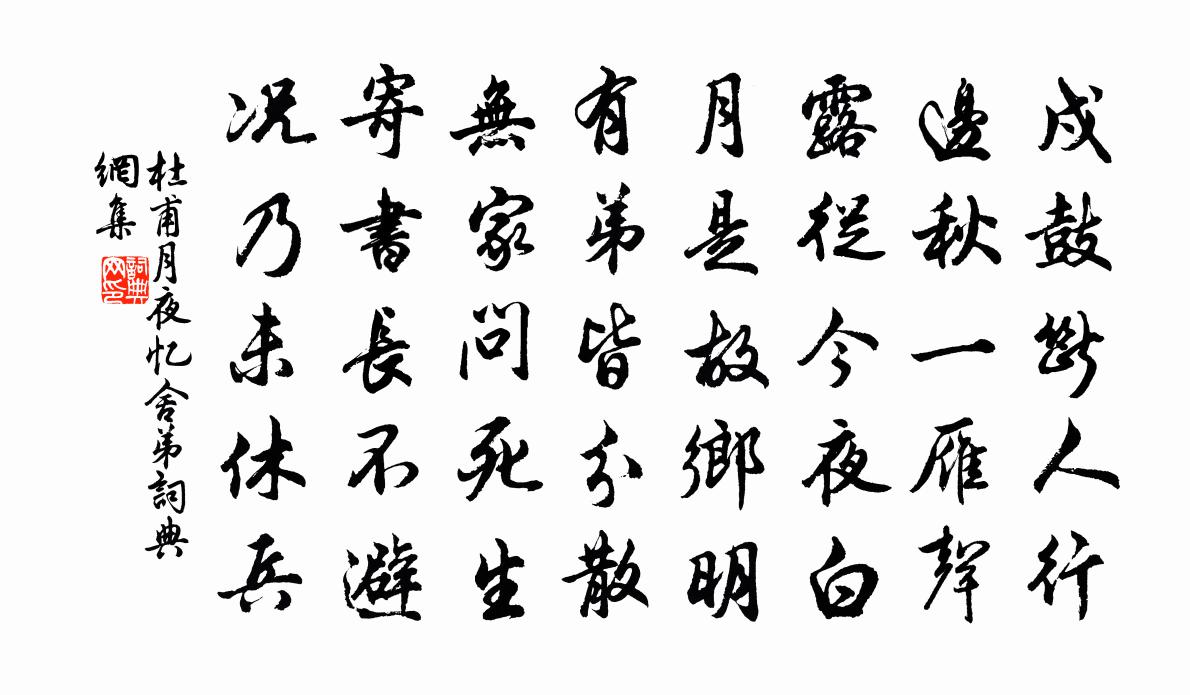 戍鼓斷人行
邊秋一雁聲
露從今夜白
月是故鄉明
有弟皆分散
無家問死生
寄書長不避
況乃未休兵
杜甫月夜忆舍弟詞典
網集
詞典
网印